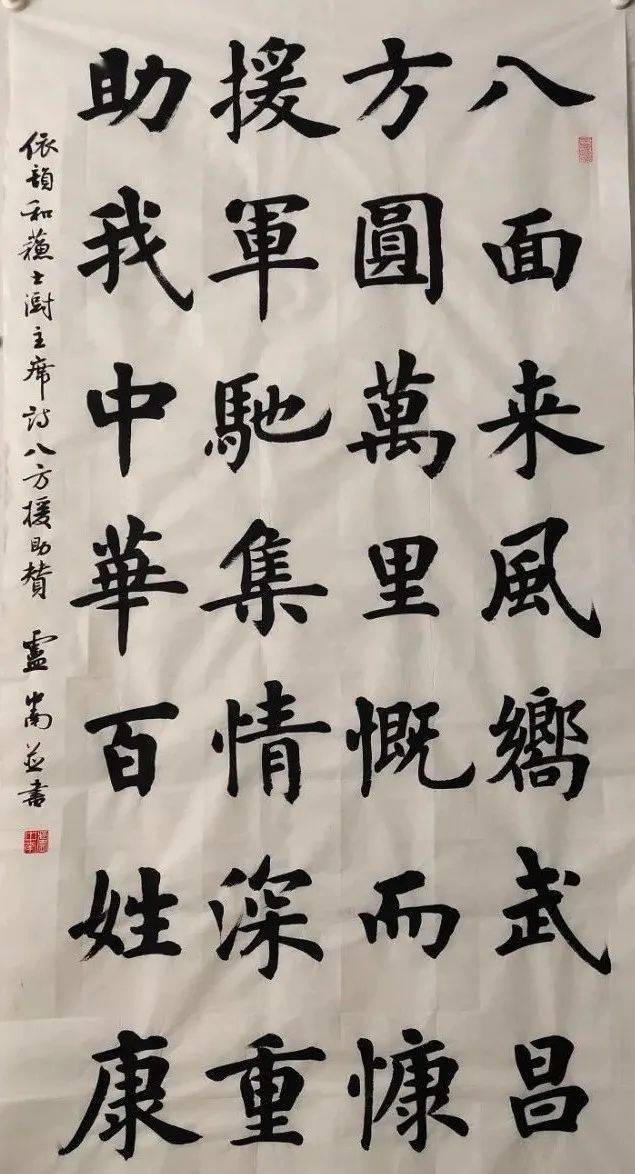 八面来風嚮武昌
方圓萬里慨而慷
援軍馳集情深重
助我中華百姓康
依韻和蘓士澍主席詩八方援助贊 盧嵩並書